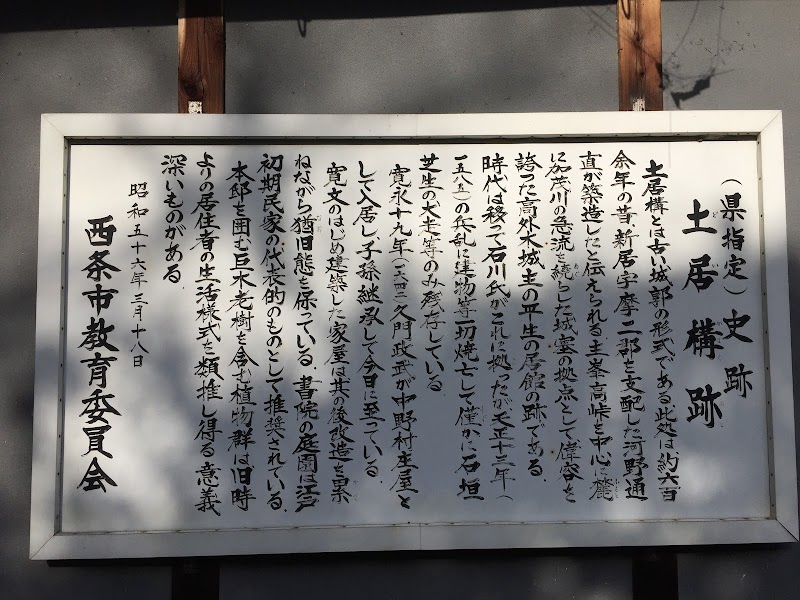 (県指定)史跡
土居構跡
土居構とは古い城郭の形式である此処は約六百
余年の昔、新居宇摩二郡を支配した河野通
直が築造したと伝えられる主峯高峠を中心に麓
に加茂川の急流を繞らした城塞の拠点として偉容を
誇った高外木城主の平生の居館の跡である
時代は移って石川氏がこれに拠ったが天正十三年(
一五八五)の兵乱に建物等一切焼亡して僅かに石垣
芝生の犬走等のみ残存している
寛永十九年(一六四二)久門政武が中野村庄屋と
して入居し、子孫継承して今日に至っている
寛文のはじめ建築した家屋は其の後改造を累
ねながら猶旧態を保っている 書院の庭園は江戸
初期民家の代表的のものとして推奨されている
本邸を囲む巨木老樹を含む植物群は旧時
よりの居住者の生活様式を類推し得る意義
深いものがある
昭和五十六年三月十八日
西条市教育委員会